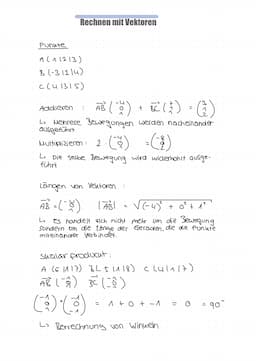 Rechnen mit Vektoren
Punkte
A(1|2|3)
B(-3|2|4)
C(4|3|5)
Addieren:
↳ Mehrere Bewegungen werden nacheinander
ausgeführt
Multiplizieren: 2 ·
↳ Die selbe Bewegung wird wiederholt ausge-
führt
Längen von Vektoren:
|AB| = √(-4)² + 0² + 1²
↳ Es handelt sich nicht mehr um die Bewegung
sondern um die Länge der Geraden, die die Punkte
miteinander verbindet.
Skalarprodukt:
A(6|1|7) B(5|1|8) C(4|1|7)
= 1 + 0 + -1 = 0 = 90°
↳ Berechnung von Winkeln